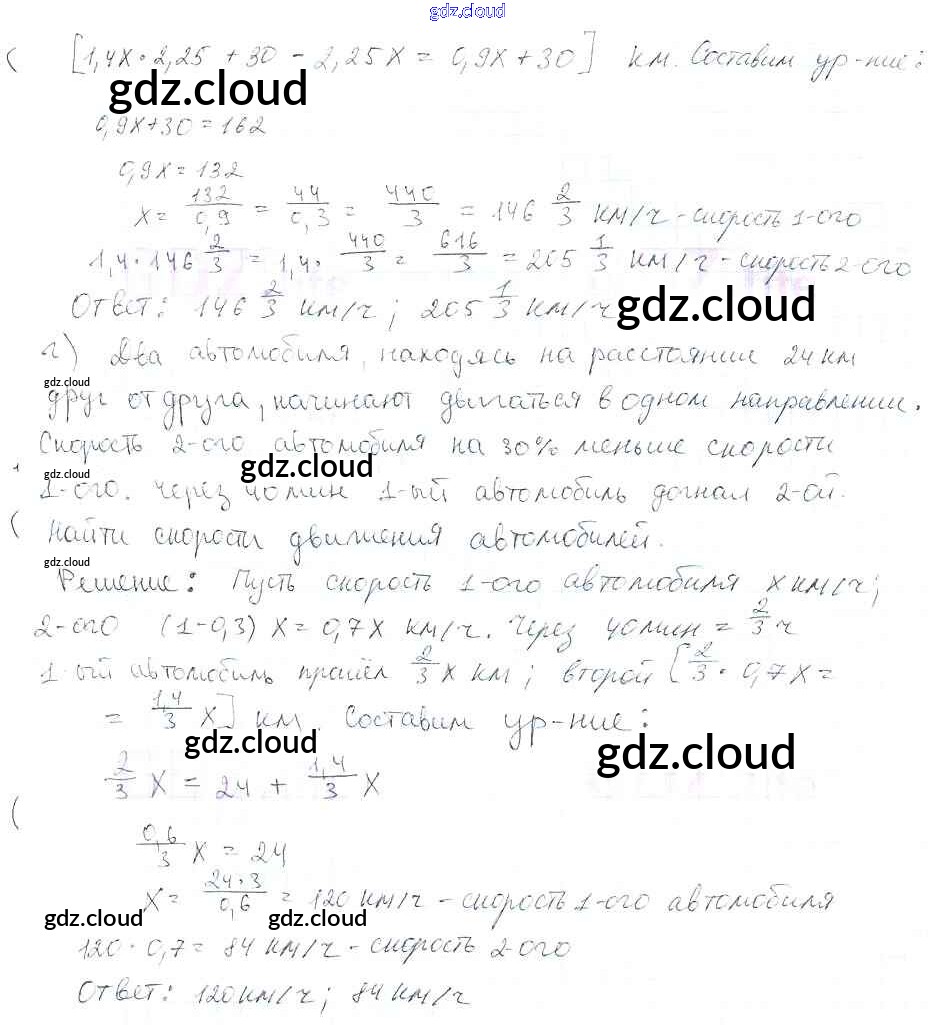 gdz.cloud
[1,4x·2,25 + 30 - 2,25x = 0,9x + 30] км. Составим ур-ние:
gdz.cloud
0,9x+30 = 162
0,9x = 132
x = 132/0,9 = 44/0,3 = 440/3 = 146 2/3 км/ч - скорость 1-ого
1,4·146 2/3 = 1,4· 440/3 = 616/3 = 205 1/3 км/ч - скорость 2-ого
Ответ: 146 2/3 км/ч; 205 1/3 км/ч
gdz.cloud
г) Два автомобиля, находясь на расстоянии 24 км
gdz.cloud
друг от друга, начинают двигаться в одном направлении.
Скорость 2-ого автомобиля на 30% меньше скорости
gdz.cloud
gdz.cloud
1-ого. Через 40 мин 1-ый автомобиль догнал 2-ой.
Найти скорости движения автомобилей.
gdz.cloud
Решение: Пусть скорость 1-ого автомобиля x км/ч;
2-ого (1-0,3) x = 0,7x км/ч. Через 40 мин = 2/3 ч
1-ый автомобиль прошёл 2/3 x км; второй [2/3 · 0,7x =
= 1,4/3 x] км. Составим ур-ние:
gdz.cloud
gdz.cloud
2/3 x = 24 + 1,4/3 x
0,6/3 x = 24
x = 24·3/0,6 = 120 км/ч - скорость 1-ого автомобиля
gdz.cloud
gdz.cloud
120 · 0,7 = 84 км/ч - скорость 2-ого
Ответ: 120 км/ч; 84 км/ч